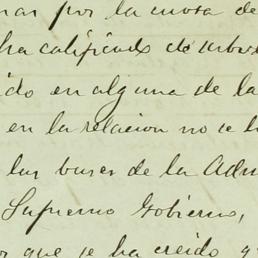 nar por la cuota de
ha calificado de urbar
ido en alguna de la
en la relacion no se h
las bases de la Adm
Supremo Gobierno,
or que se ha creido q